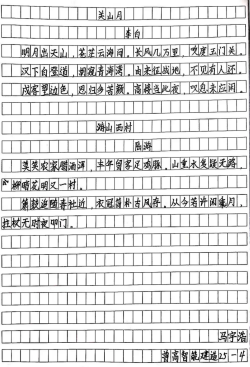 关山月
李白
明月出天山，苍茫云海间。长风几万里，吹度玉门关。
汉下白登道，胡窥青海湾。由来征战地，不见有人还。
戍客望边色，思归多苦颜。高楼当此夜，叹息未应闲。
游山西村
陆游
莫笑农家腊酒浑，丰年留客足鸡豚。山重水复疑无路，
柳暗花明又一村。
箫鼓追随春社近，衣冠简朴古风存。从今若许闲乘月，
拄杖无时夜叩门。
马宇浩
25-4